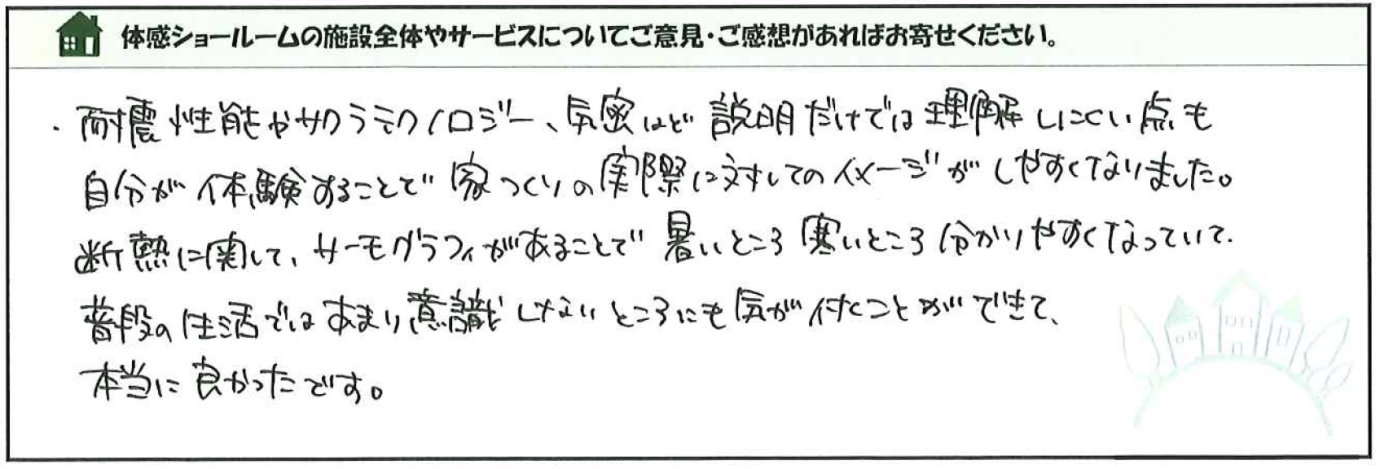 体感ショールームの施設全体やサービスについてご意見・ご感想があればお寄せください。
・耐震性能やサクラテクノロジー、気密など説明だけでは理解しにくい点も
自分が体験することで家づくりの実際に対してのイメージがしやすくなりました。
断熱に関して、サーモグラフィがあることで暑いところ寒いところ分かりやすくなっていて、
普段の生活ではあまり意識しないところにも気が付くことができて、
本当に良かったです。